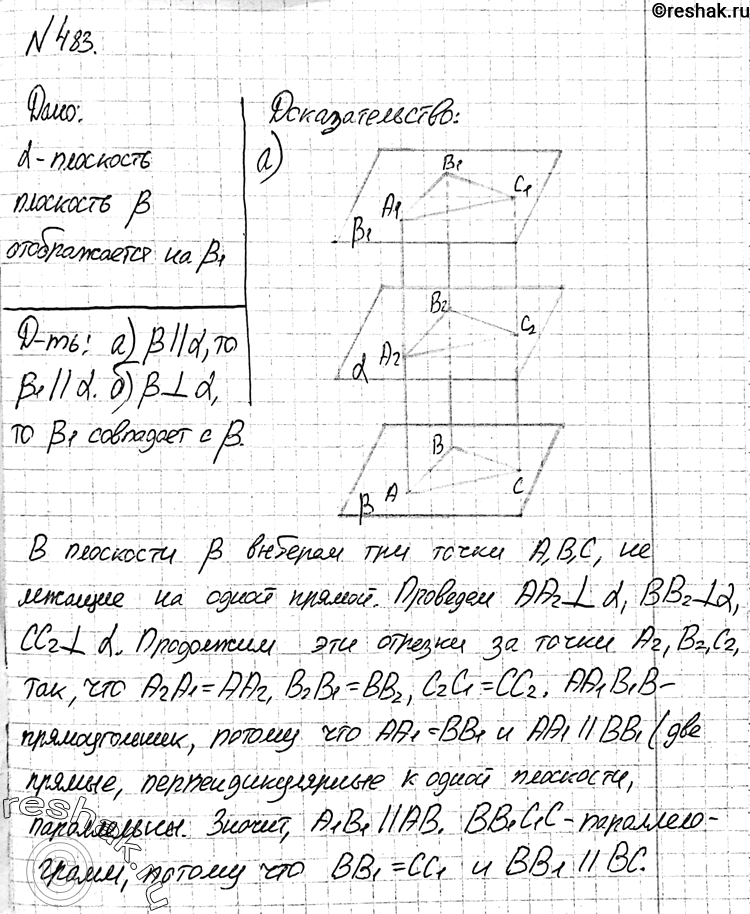 ©reshak.ru
N 483.
Дано:
α-плоскость
плоскость β
отображается на β₁
Д-ть: а) β || α, то
β₁ || α. б) β ⊥ α,
то β₁ совпадает с β.
Доказательство:
а)
B₁
C₁
A₁
β₁
B₂
C₂
A₂
α
B
A
C
β
В плоскости β выберем три точки A, B, C, не
лежащие на одной прямой. Проведем AA₂ ⊥ α, BB₂ ⊥ α,
CC₂ ⊥ α. Продолжим эти отрезки за точки A₂, B₂, C₂,
так, что A₂A₁ = AA₂, B₂B₁ = BB₂, C₂C₁ = CC₂. AA₁B₁B -
прямоугольник, потому что AA₁ = BB₁ и AA₁ || BB₁ (две
прямые, перпендикулярные к одной плоскости,
параллельны. Значит, A₁B₁ || AB. BB₁C₁C - параллело-
грамм, потому что BB₁ = CC₁ и BB₁ || BC.
reshak.ru